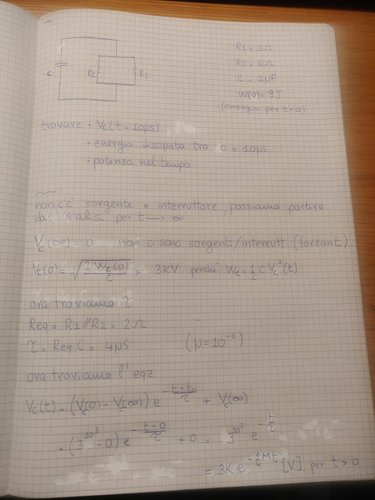 C
R1
R2
R1 = 3Ω
R2 = 6Ω
C = 2μF
W(0) = 9J
(energia per t=0)
trovare • Vc(t = 10μs)
• energia dissipata tra 0 e 10μs
• potenza nel tempo
non c'è sorgente o interruttore, possiamo partire
dall'analisi per t → ∞
Vc(∞) = 0 non ci sono sorgenti/interrutt (forzanti)
Vc(0) = √(2 Wc(0)/C) = 3KV perché Wc = 1/2 C Vc²(t)
ora troviamo τ
Req = R1//R2 = 2Ω
τ = Req C = 4μS (μ = 10^-6)
ora troviamo l'eqz
Vc(t) = (Vc(0) - Vc(∞)) e^(-(t-t0)/τ) + Vc(∞)
= (3^10^3 - 0) e^(-(t-0)/τ) + 0 = 3^10^3 e^(-t/τ)
= 3K e^(-1/4 Mt) [V] per t > 0